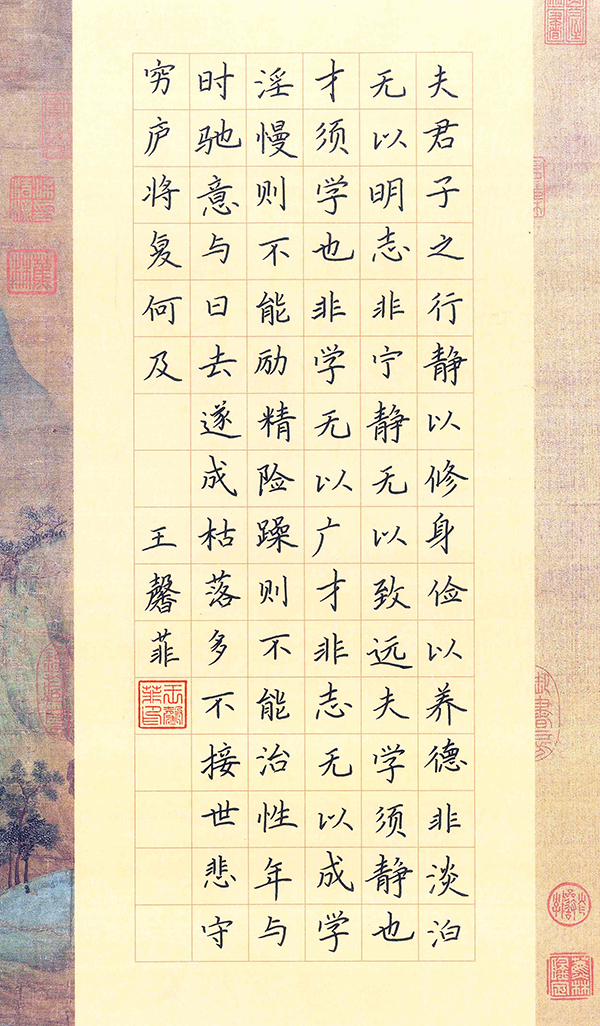 夫君子之行静以修身俭以养德非淡泊
无以明志非宁静无以致远夫学须静也
才须学也非学无以广才非志无以成学
淫慢则不能励精险躁则不能治性年与
时驰意与日去遂成枯落多不接世悲守
穷庐将复何及
王馨菲
王馨菲印